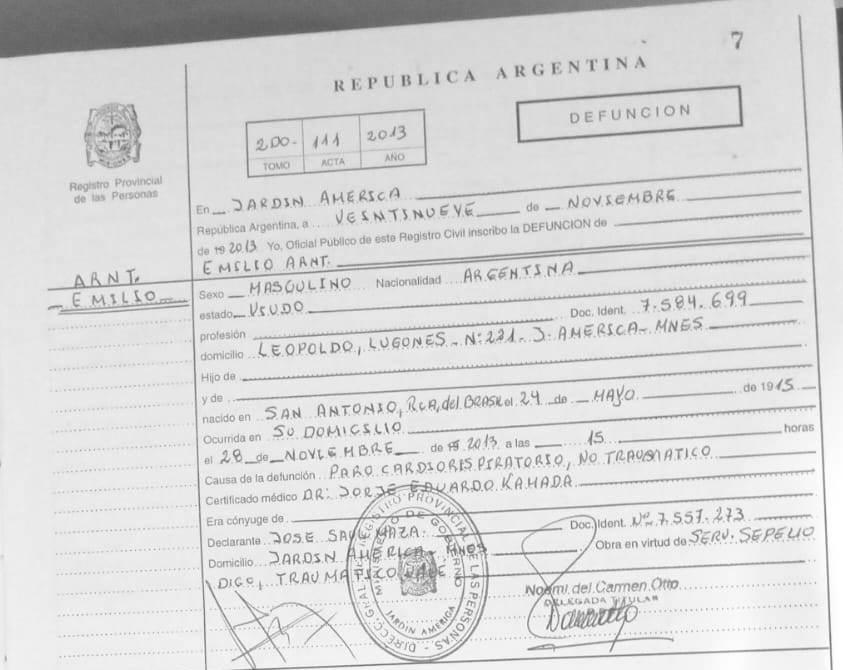 7
REPUBLICA ARGENTINA
DEFUNCION
200- 111 2013
TOMO ACTA AÑO
Registro Provincial
de las Personas
En JARDIN AMERICA
República Argentina, a VEINTINUEVE de NOVIEMBRE
de 19 2013 Yo, Oficial Público de este Registro Civil inscribo la DEFUNCION de
EMILIO ARNT.
ARNT.
EMILIO
Sexo MASCULINO Nacionalidad ARGENTINA
estado VIUDO
profesión Doc. Ident. 7.584.699
domicilio LEOPOLDO, LUGONES - N: 221 - J. AMERICA - MNES
Hijo de
y de
nacido en SAN ANTONIO, RCA, del BRASIL el 24 de MAYO de 1915
Ocurrida en SU DOMICILIO
el 28 de NOVIEMBRE de 19 2013 a las 15 horas
Causa de la defunción PARO CARDIORESPIRATORIO, NO TRAUMATICO
Certificado médico DR: JORJE EDUARDO KAMADA
Era cónyuge de
Declarante JOSE MAZA: Doc. Ident. Nº 7.557.273
Domicilio JARDIN AMERICA - MNES Obra en virtud de SERV. SEPELIO
DIGO, TRAUMATICO VALE
Noemi del Carmen Otto
DELEGADA TITULAR
MINISTERIO DE GOBIERNO
DIRECC. GRAL. REGISTRO PROVINCIAL DE LAS PERSONAS
JARDIN AMERICA